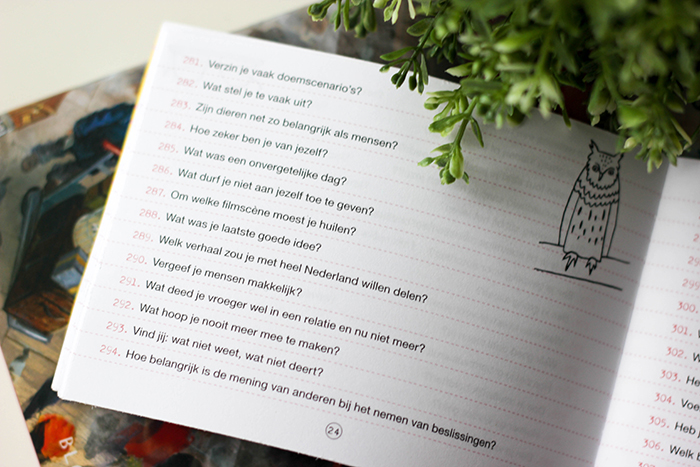 281. Verzin je vaak doemscenario's?
282. Wat stel je te vaak uit?
283. Zijn dieren net zo belangrijk als mensen?
284. Hoe zeker ben je van jezelf?
285. Wat was een onvergetelijke dag?
286. Wat durf je niet aan jezelf toe te geven?
287. Om welke filmscène moest je huilen?
288. Wat was je laatste goede idee?
289. Welk verhaal zou je met heel Nederland willen delen?
290. Vergeef je mensen makkelijk?
291. Wat deed je vroeger wel in een relatie en nu niet meer?
292. Wat hoop je nooit meer mee te maken?
293. Vind jij: wat niet weet, wat niet deert?
294. Hoe belangrijk is de mening van anderen bij het nemen van beslissingen?
24
300.
301.
302.
303. He
304.
305. Heb
306. Welk
BL